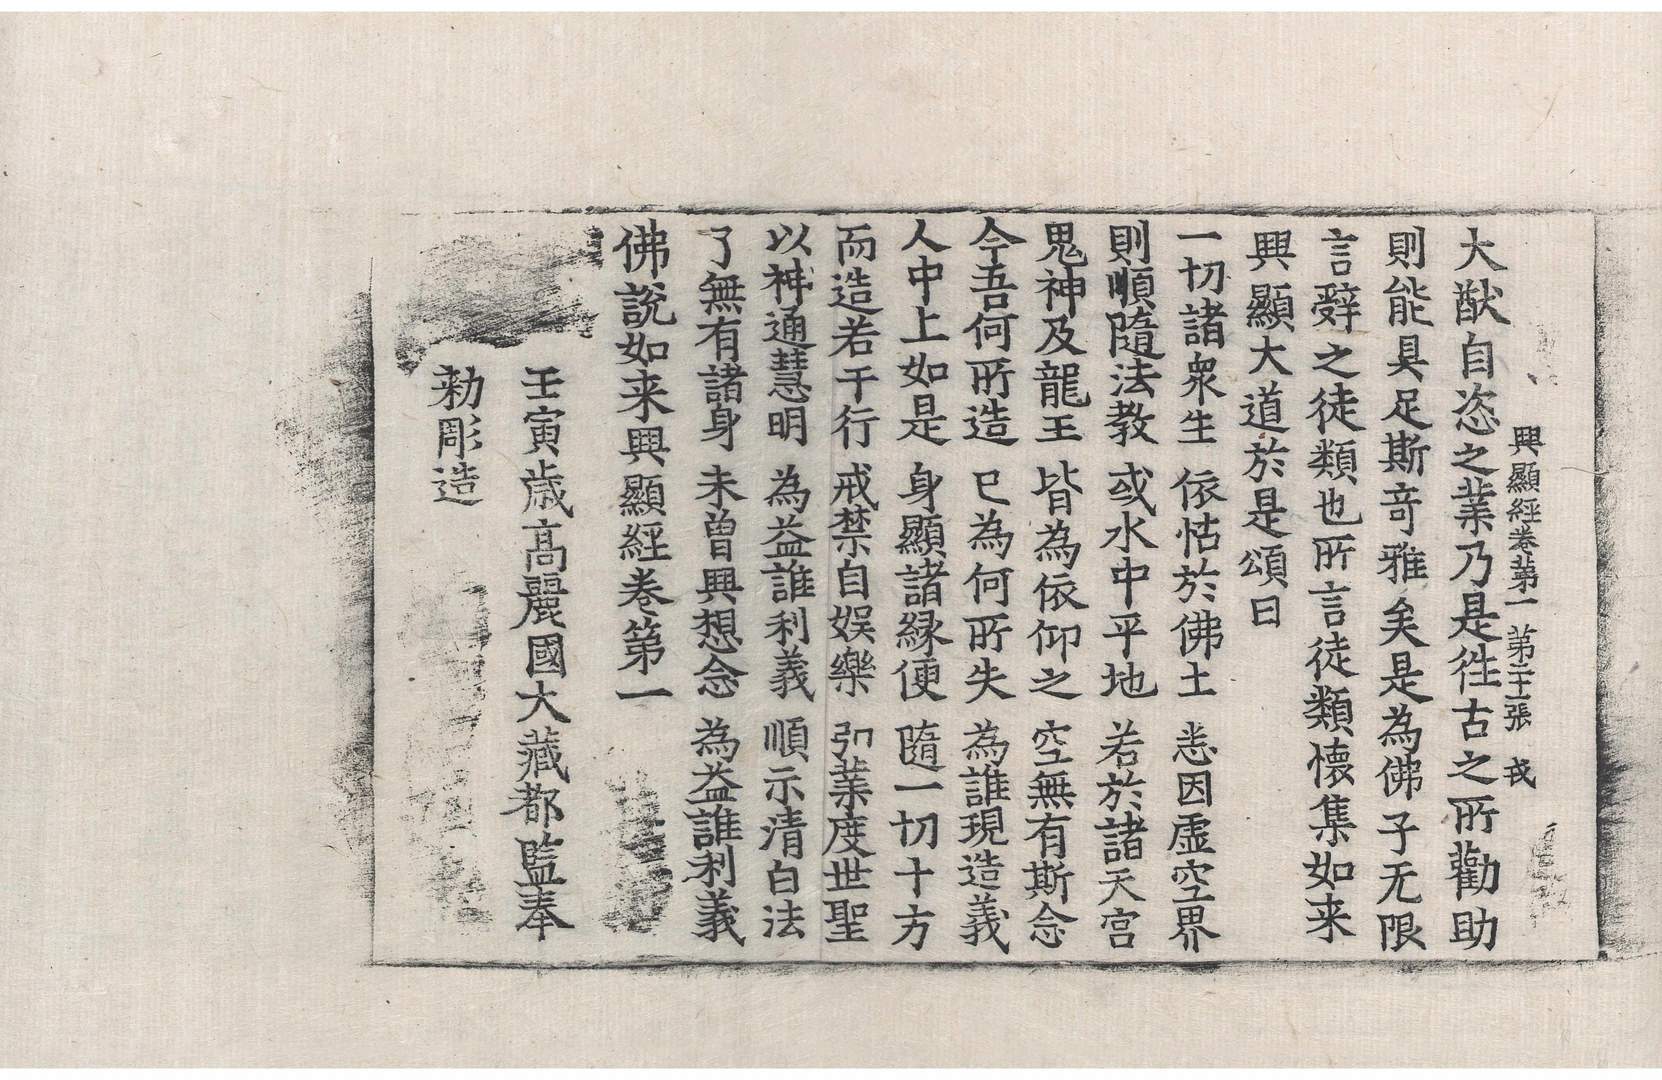 興顯經卷苐一 苐二十張 戎
大猷自恣之業乃是徃古之所勸助
則能具足斯竒雅矣是為佛子无限
言辭之徒類也所言徒類懷集如来
興顯大道於是頌曰
一切諸衆生 依怙於佛土 悉因虛空界
則順隨法教 或水中平地 若於諸天宮
鬼神及龍王 皆為依仰之 空無有斯念
今吾何所造 已為何所失 為誰現造義
人中上如是 身顯諸緣便 隨一切十方
而造若干行 戒禁自娛樂 引業度世聖
以神通慧明 為益誰利義 順示清白法
了無有諸身 未曽興想念 為益誰利義
佛說如来興顯經卷第一
壬寅歲髙麗國大藏都監奉
勑彫造